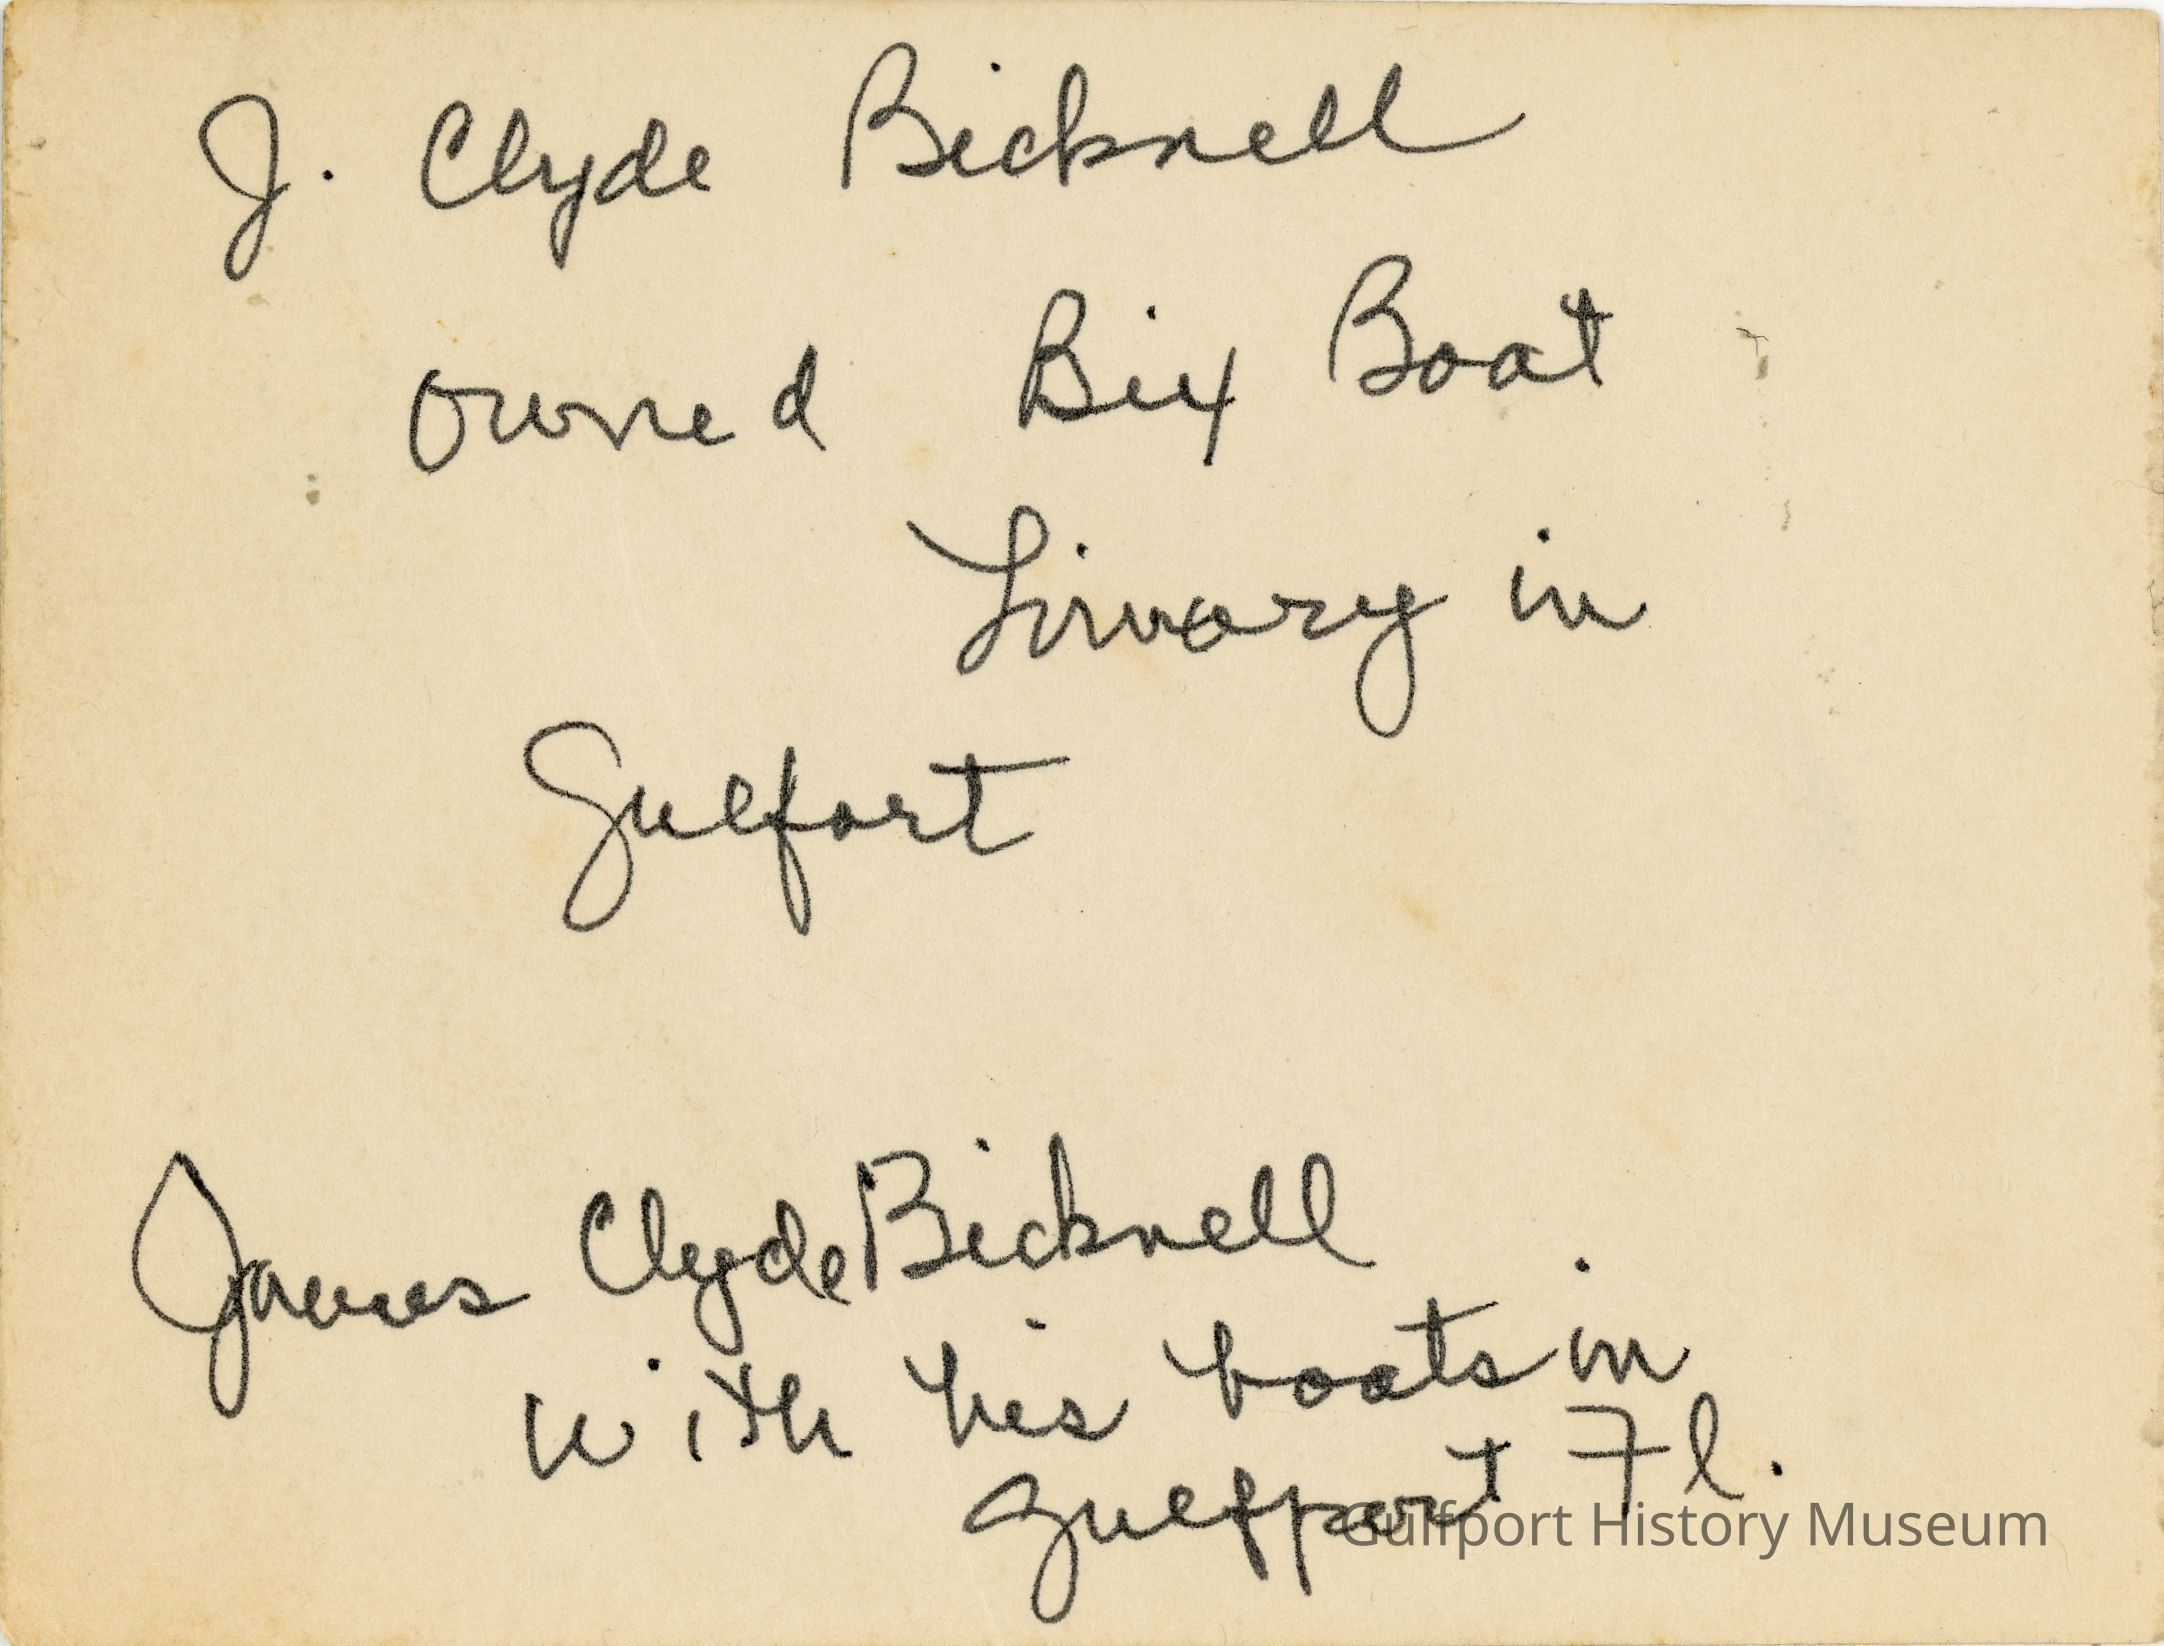 J. Clyde Bicknell
owned Bix Boat
Livery in
Gulfort
James Clyde Bicknell
with his boats in
Gulfport Fl.
Gulfport History Museum